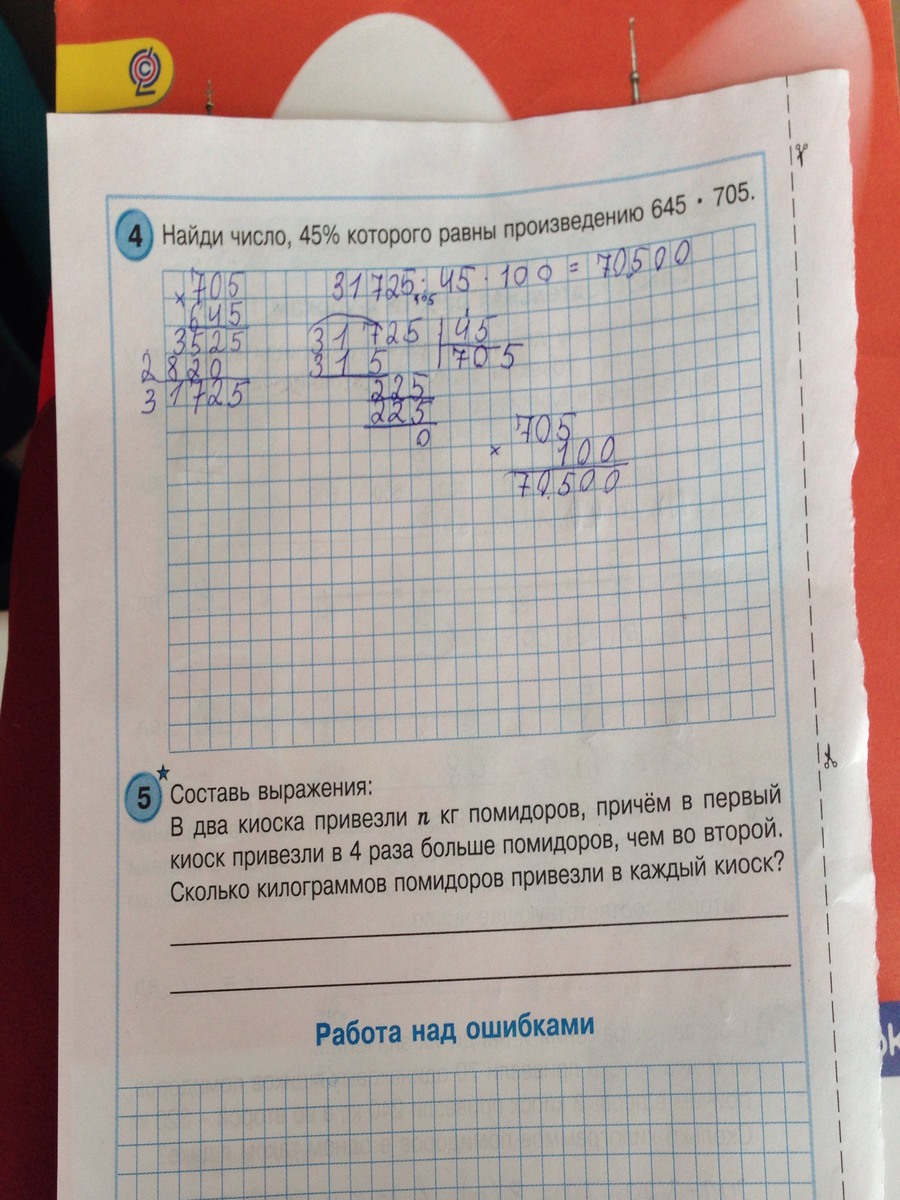 4 Найди число, 45% которого равны произведению 645 · 705.
× 705
645
3525
2820
31725
31725 : 45 · 100 = 70500
705
31725 | 45
315 | 705
225
225
0
705
× 100
70500
5 Составь выражения:
В два киоска привезли n кг помидоров, причём в первый
киоск привезли в 4 раза больше помидоров, чем во второй.
Сколько килограммов помидоров привезли в каждый киоск?
Работа над ошибками